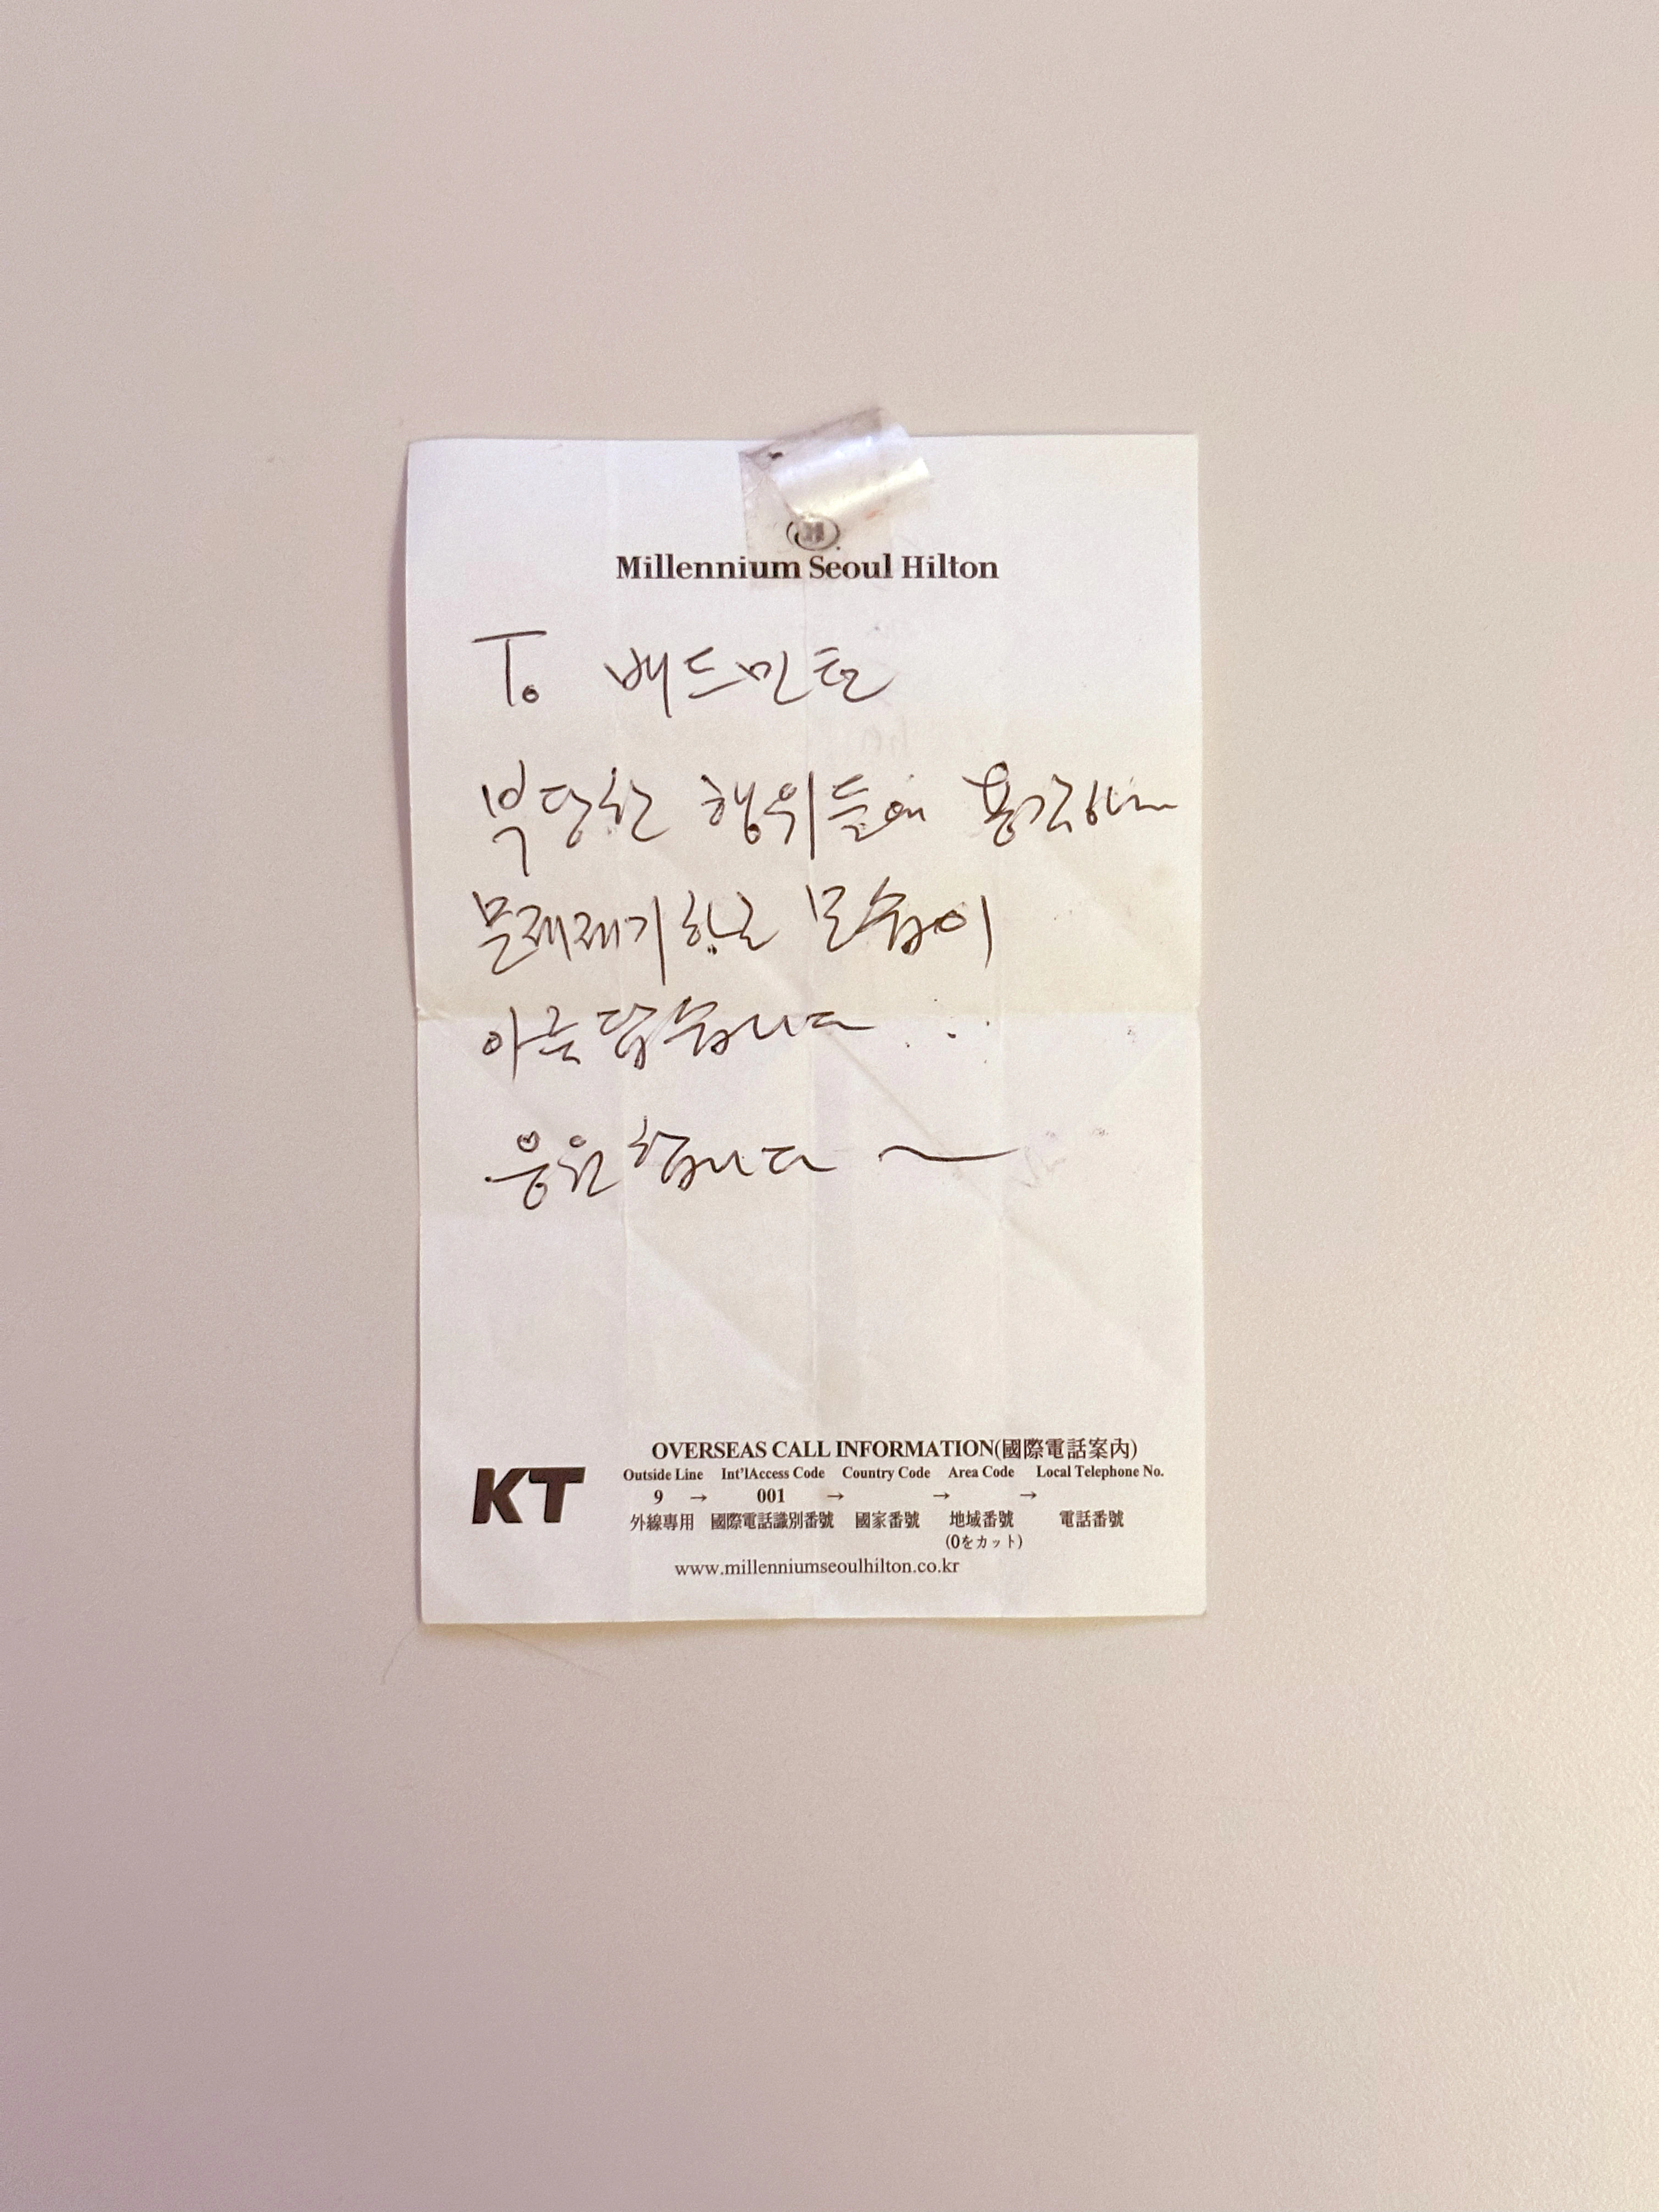 Millennium Seoul Hilton
To 배드민턴
부당한 행위들에 용감하게
문제제기하는 모습이
아름답습니다
응원합니다 ~
KT
OVERSEAS CALL INFORMATION(國際電話案內)
Outside Line Int'lAccess Code Country Code Area Code Local Telephone No.
9 → 001 → → →
外線專用 國際電話識別番號 國家番號 地域番號 電話番號
(0をカット)
www.millenniumseoulhilton.co.kr